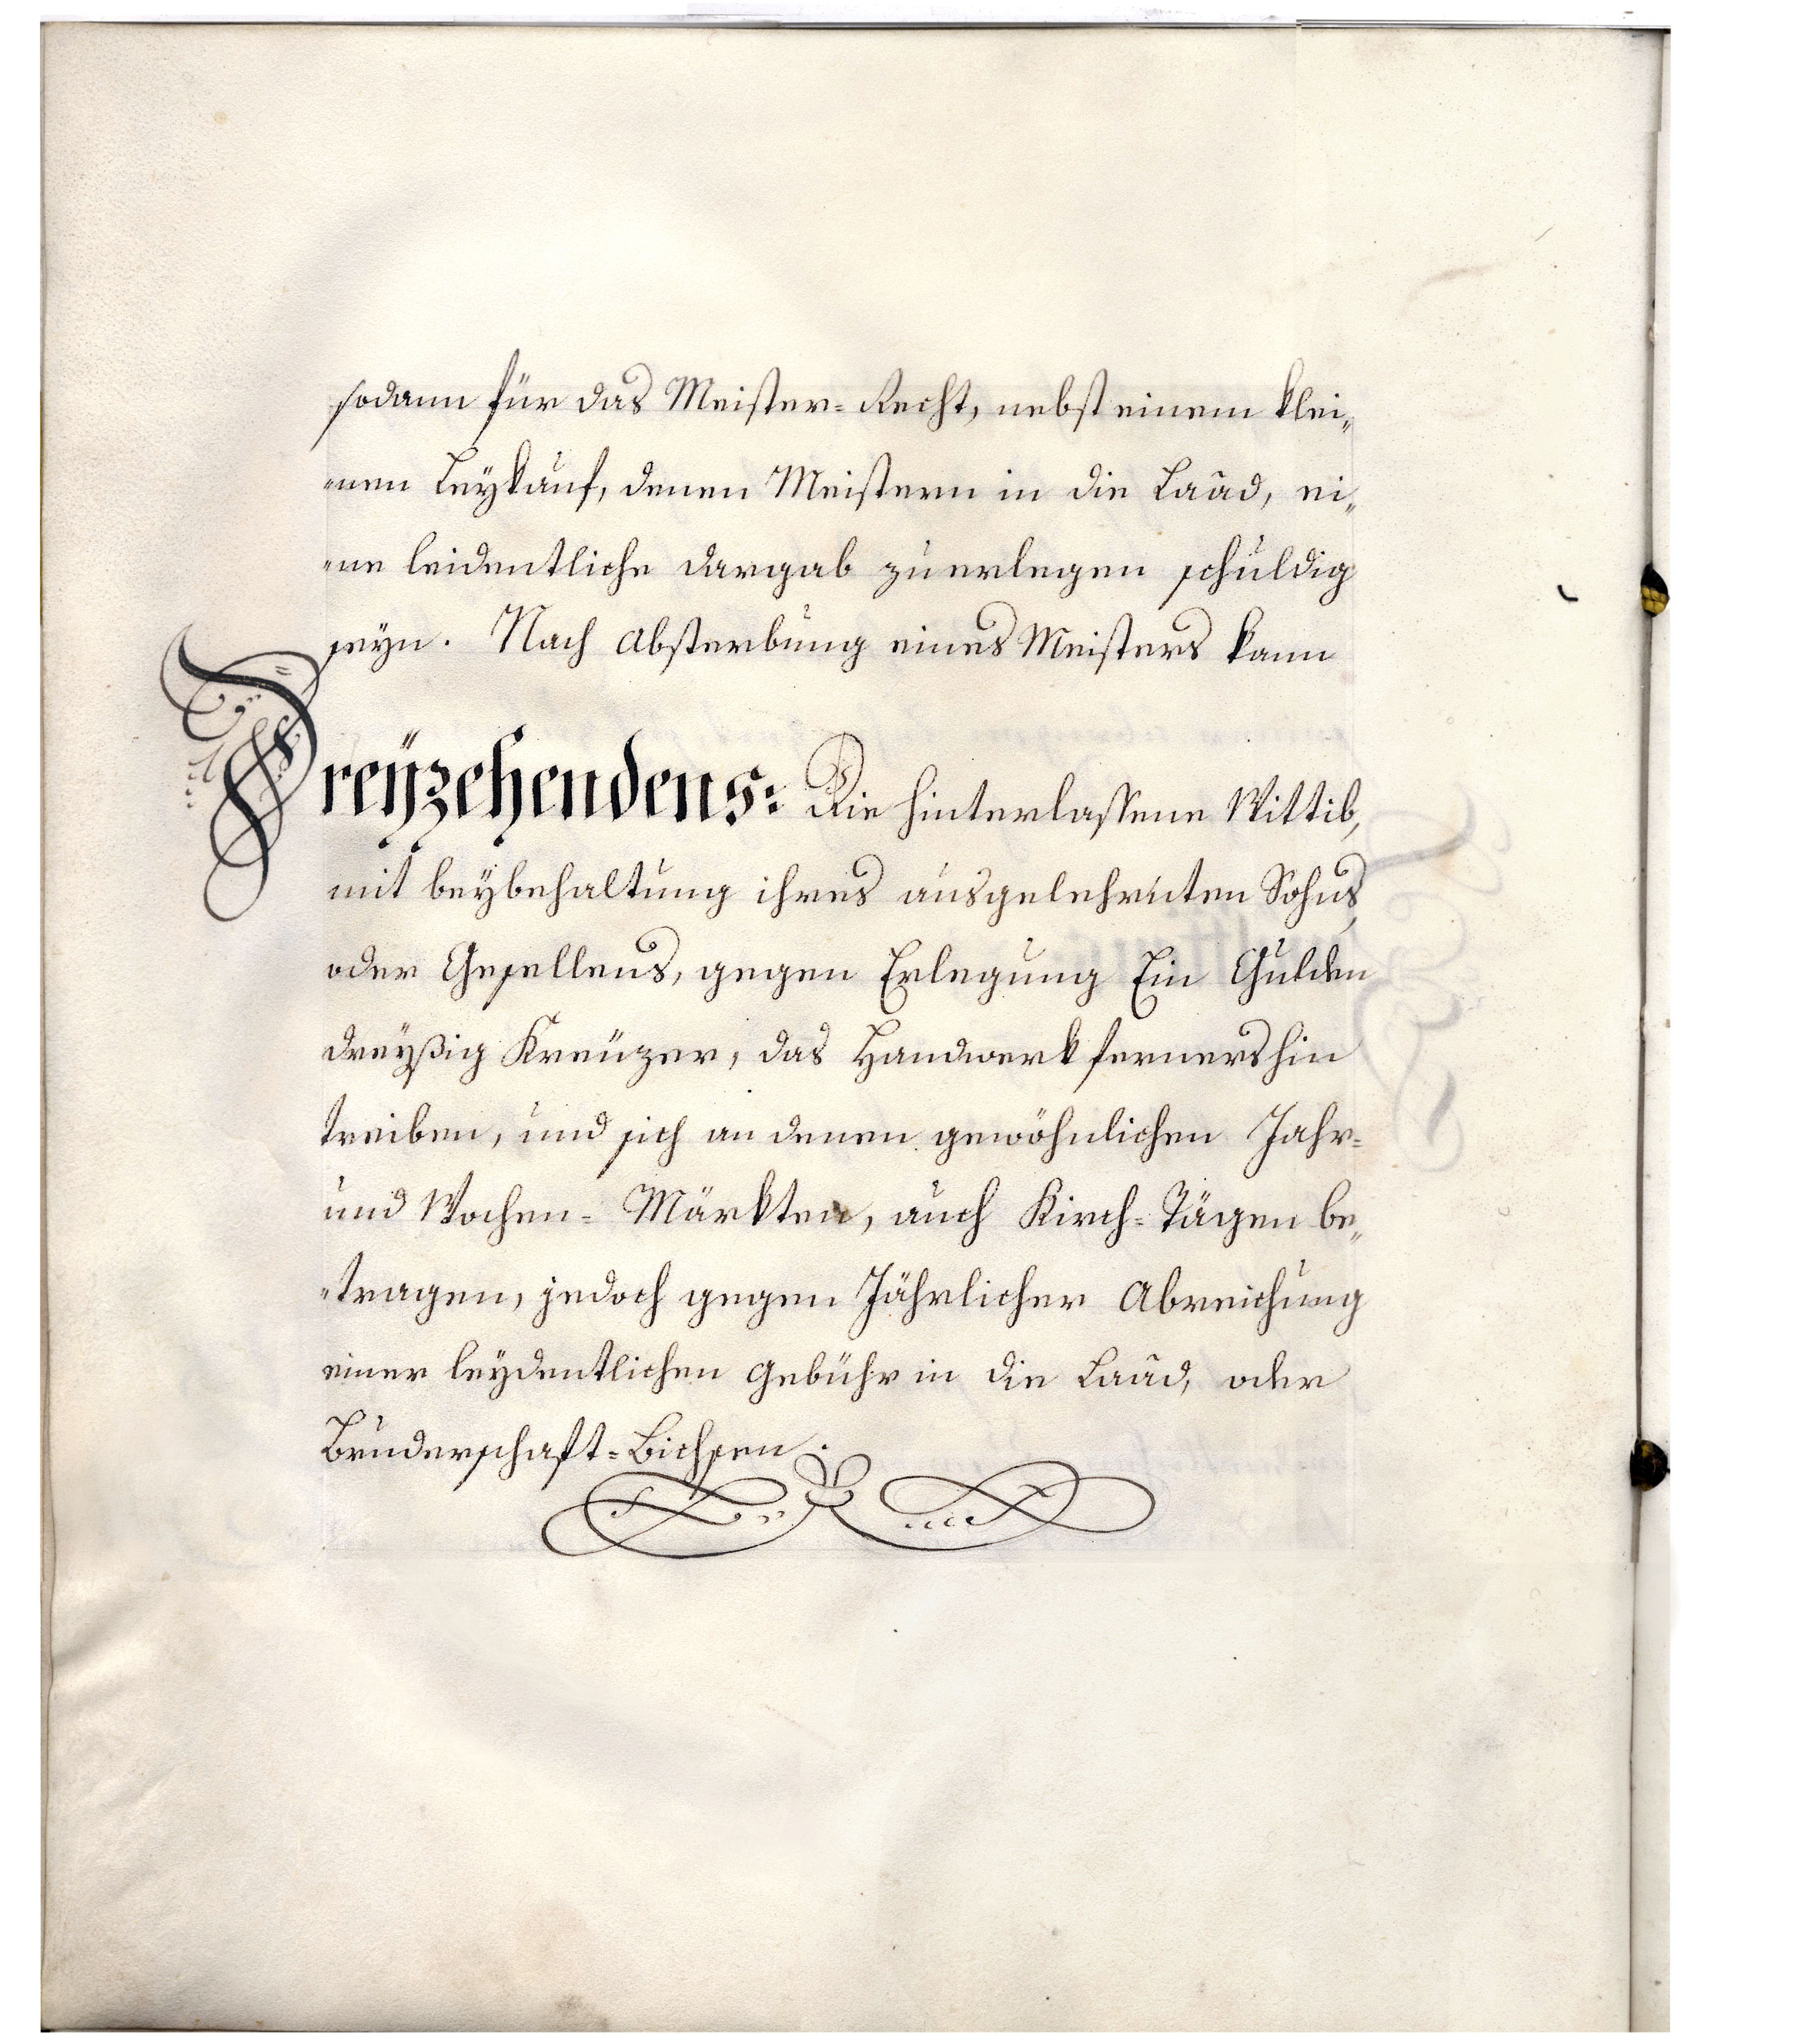 sodann für das Meister=Recht, nebst einem klei„
„nen Leykauf, denen Meistern in die Laad, ei„
„ne leidentliche dargab zu erlegen schuldig
seyn. Nach absterbung eines Meisters kann
Dreÿzehendens: Die hinterlassene Wittib,
mit beybehaltung ihres ausgelehrnten Sohns,
oder Gesellens, gegen Erlegung Ein Gulden
dreyßig Kreuzer, das Handwerk fernershin
treiben, und sich an denen gewöhnlichen Jahr=
und Wochen=Märkten, auch Kirch=Tägen be„
„tragen, jedoch gegen Jährlicher Abreichung
einer leydentlichen gebühr in die Laad, oder
Bruderschaft=Bichsen.